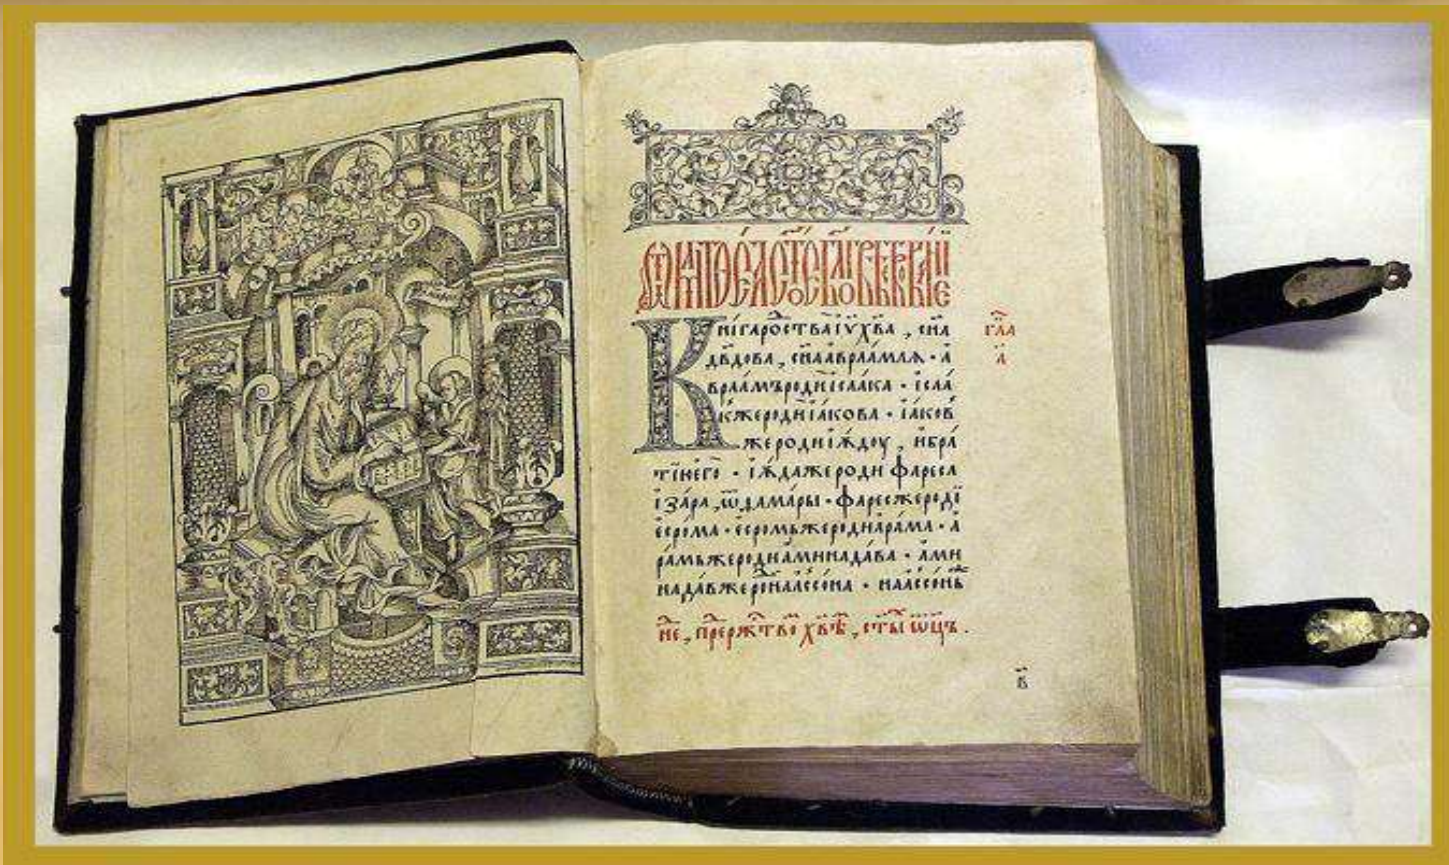 Ѿ МАТѲЕА СТ҃ОЕ БЛ҃ГОВѢСТВОВАНІЕ
Кни́гаро́ства І҃У҃ х҃ва , сн҃а
дв҃дова , сн҃аавраа́мля · а҆
враа́мъродѝ і҆саа́ка · і҆саа́
кжеродѝ і҆а́кова · і҆а́ков
жеродѝ і҆ю́доу , и҆бра́
тїю҆его̀ · і҆ю́дажеродѝ фаре́са
і҆ за́ра , ѿдама́ры · фаре́сжеродѝ
е҆сро́ма · е҆сро́мьжеродѝ а҆ра́ма · а҆
ра́мьжеродѝ а҆минада́ва · а҆ми
нада́вжеро наассо́на · наассо́нь
гл҃а
а҃
не , пре́рж҃тво́ х҃вѣ , ст҃ы ѿц҃ъ .
в҃